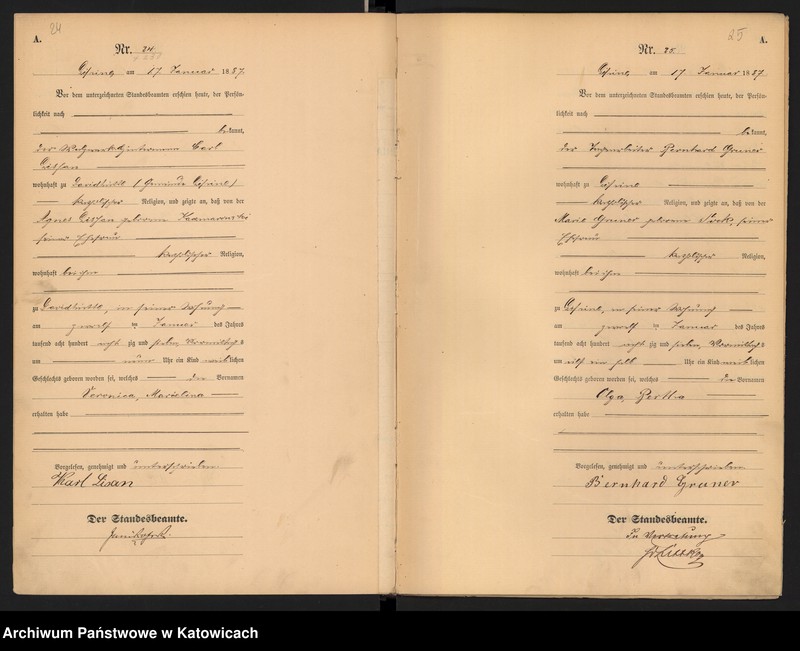 24
A.
Nr. 24
am 17 Januar 1887.
Vor dem unterzeichneten Standesbeamten erschien heute, der Persön-
lichkeit nach
bekannt,
der Carl
wohnhaft zu Davidhütte (Gemeinde
katholischer Religion, und zeigte an, daß von der
Agnes geborene
seiner Ehefrau
katholischer Religion,
wohnhaft bei ihm
zu Davidhütte, in seiner Wohnung
am zwoelf ten Januar des Jahres
tausend acht hundert acht zig und sieben, Vormittags
um neun Uhr ein Kind weiblichen
Geschlechts geboren worden sei, welches die Vornamen
Veronica,
erhalten habe
Vorgelesen, genehmigt und unterschrieben
Karl Lisan
Der Standesbeamte.
25
A.
Nr. 25
am 17 Januar 1887
Vor dem unterzeichneten Standesbeamten erschien heute, der Persön-
lichkeit nach
bekannt,
der Bernhard Gruner
wohnhaft zu
katholischer Religion, und zeigte an, daß von der
Marie Gruner geborene seiner
Ehefrau
katholischer Religion,
wohnhaft bei ihm
zu in seiner Wohnung
am zwoelf ten Januar des Jahres
tausend acht hundert acht zig und sieben, Vormittags
um elf ein halb Uhr ein Kind weiblichen
Geschlechts geboren worden sei, welches die Vornamen
Olga, Bertha
erhalten habe
Vorgelesen, genehmigt und unterschrieben
Bernhard Gruner
Der Standesbeamte.
In Vertretung
Archiwum Państwowe w Katowicach